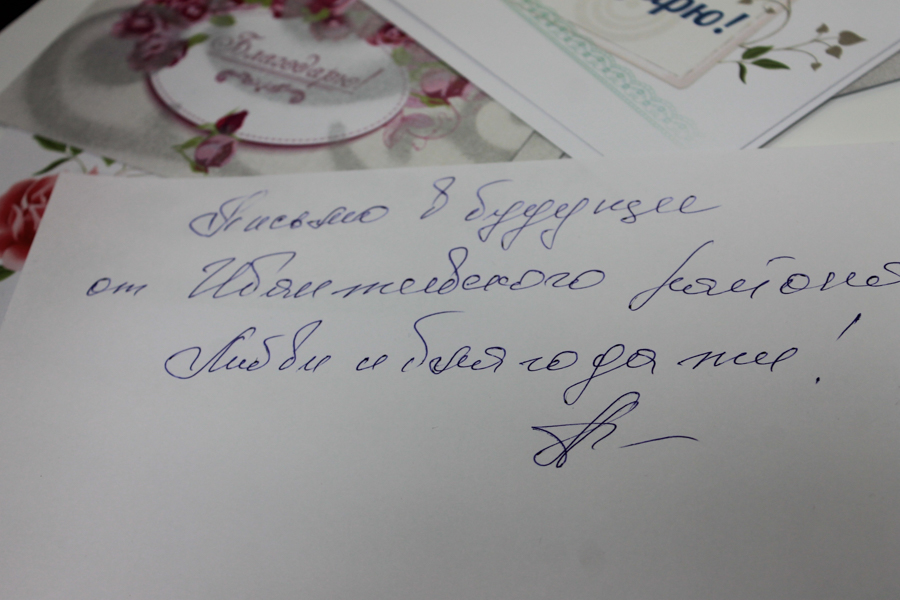 Благодарю!
рю!
Письмо в будущее
от Ивантеевского района
Любви и благодати!